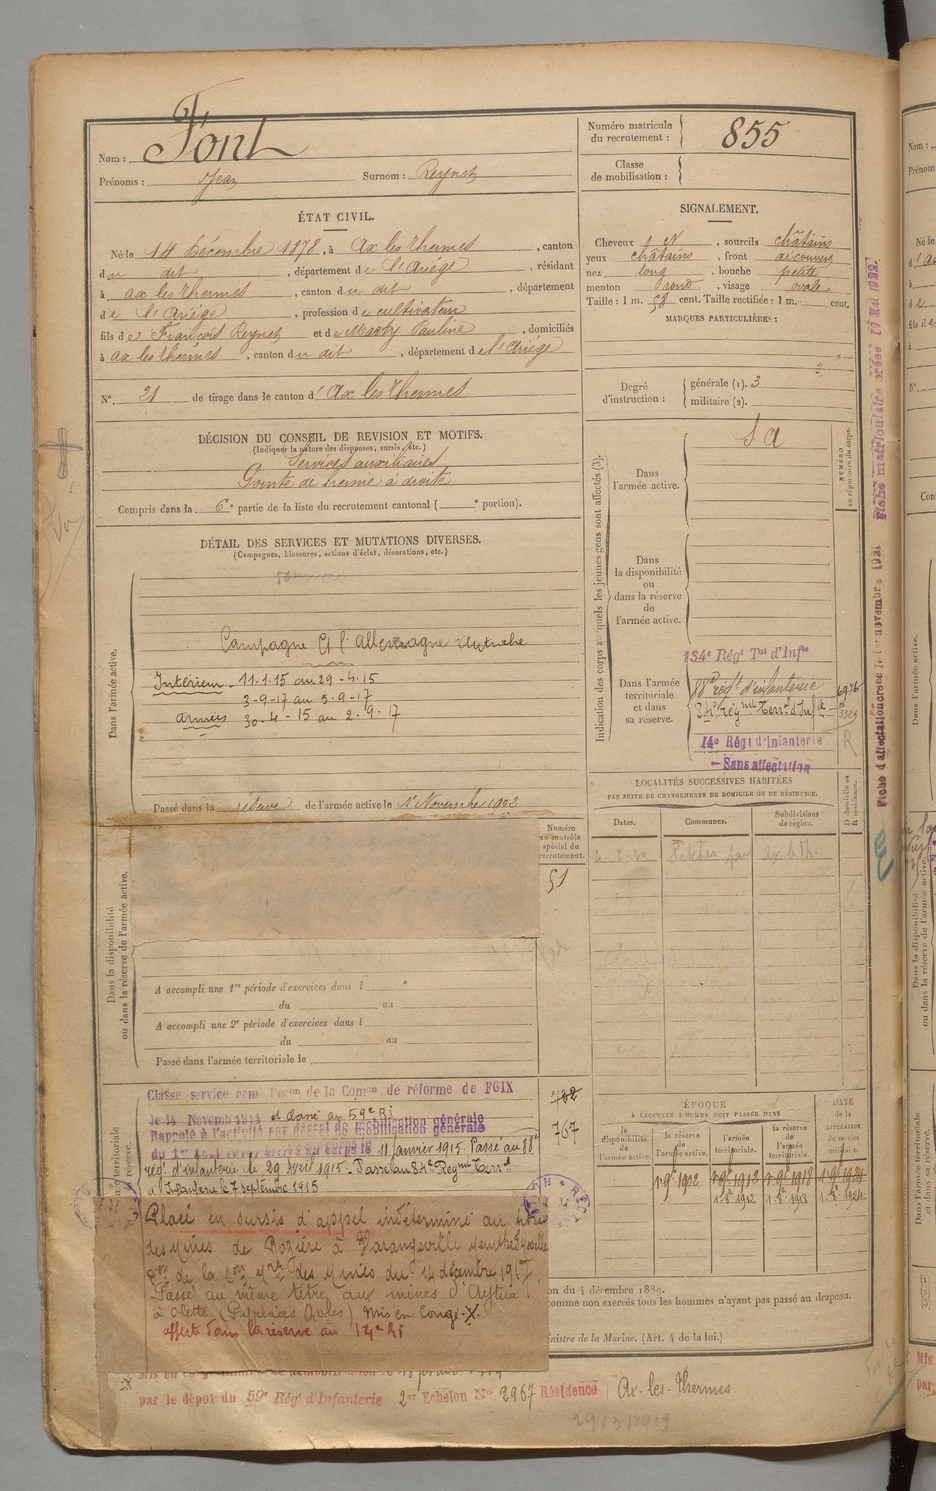 Nom : Font
Prénoms : Jean Surnom : Reynet
Numéro matricule du recrutement : 855
Classe de mobilisation :
ÉTAT CIVIL.
Né le 14 Décembre 1878, à Ax les Thermes, canton
du dit, département de l'Ariège, résidant
à ax les Thermes, canton du dit, département
de l'Ariège, profession de cultivateur
fils de François Reynet et de Marty Pauline, domiciliés
à ax les thermes, canton du dit, département de l'Ariège
N°. 21 de tirage dans le canton d'Ax les Thermes
SIGNALEMENT.
Cheveux et, sourcils châtains
yeux châtains, front découvert
nez long, bouche petite
menton rond, visage ovale
Taille : 1 m. 58 cent. Taille rectifiée : 1 m. cent.
MARQUES PARTICULIÈRES :
Degré d'instruction : générale (1). 3
militaire (2).
DÉCISION DU CONSEIL DE REVISION ET MOTIFS.
(Indiquer la nature des dispenses, sursis, etc.)
Services auxiliaires
Pointe de hernie à droite
Compris dans la 6e partie de la liste du recrutement cantonal ( e portion).
DÉTAIL DES SERVICES ET MUTATIONS DIVERSES.
(Campagnes, blessures, actions d'éclat, décorations, etc.)
Dans l'armée active.
Campagne Ct l'Allemagne Autriche
Intérieur - 11-1-15 au 29-4-15
3-9-17 au 5-9-17
Armées 30-4-15 au 2-9-17
Passé dans la réserve de l'armée active le 1er Novembre 1902
Numéro au contrôle spécial du recrutement.
51
Dans la disponibilité ou dans la réserve de l'armée active.
A accompli une 1re période d'exercices dans l
du au
A accompli une 2e période d'exercices dans l
du au
Passé dans l'armée territoriale le
Classe service armé Décon de la Comon de réforme de FOIX
le 14 Novemb 1914 et classé au 59e Ri
Rappelé à l'activité par décret de mobilisation générale
du 1er arrivé au corps le 11 janvier 1915. Passé au 88e
rég. d'infanterie le 29 Avril 1915 - Passé au 84e Régmt Terral
d'Infanterie le 7 septembre 1915
782
767
Placé en sursis d'appel indéterminé au titre
des Mines de Rozière à Varangeville Meurthe & Moselle
Don de la Con Mre des Mines du 14 décembre 1917.
Passé au même titre aux mines d'Aytua
à Olette (Pyrénées Orles) Mis en Congé X
affecté dans la réserve au 14e Ri
par le dépôt du 59e Régt d'Infanterie 2er Echelon No 2967 Résidence Ax-les-Thermes
29/3/1919
Indication des corps auxquels les jeunes gens sont affectés (3).
Dans l'armée active.
S A
NUMÉRO au répertoire du corps.
Dans la disponibilité ou dans la réserve de l'armée active.
Dans l'armée territoriale et dans sa réserve.
134e Régt Tal d'Infie
88e régt d'infanterie
84e Régmt Terral d'Infie
14e Régt d'Infanterie
- Sans affectation
LOCALITÉS SUCCESSIVES HABITÉES
PAR SUITE DE CHANGEMENTS DE DOMICILE OU DE RÉSIDENCE.
Dates. Communes. Subdivisions de région.
D domicile ou R résidence.
ÉPOQUE
À LAQUELLE L'HOMME DOIT PASSER DANS
la disponibilité de l'armée active.
la réserve de l'armée active.
l'armée territoriale.
la réserve de l'armée territoriale.
DATE de la LIBÉRATION du service militaire.
1-9bre 1902 1-9bre 1912 1-9bre 1918 1-9bre 1924
on du 4 décembre 1889.
comme non exercés tous les hommes n'ayant pas passé au drapeau.
inistre de la Marine. (Art. 4 de la loi.)
Fiche d'affectation créée le 1er novembre 1921 Fiche matriculaire créée 10 Mai 1922.